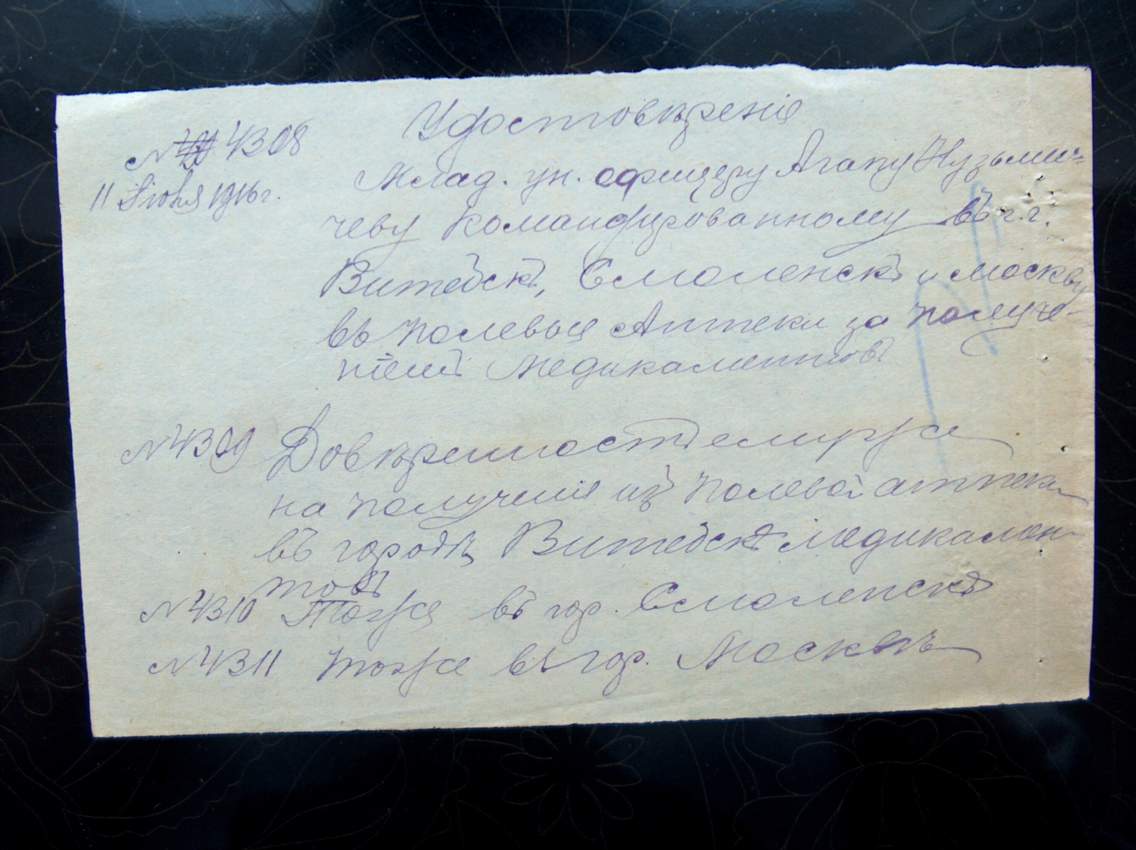 Удостовѣренiе
№ 4308
11 Iюня 1916 г.
Млад. ун. офицеру Агапу Кузьми-
чеву командированному въ г.г.
Витебскъ, Смоленскъ и Москву
въ полевыя Аптеки за получе-
нiемъ медикаментовъ
№ 4309 Довѣренность
на полученiе изъ полевой аптеки
въ городѣ Витебскѣ медикамен-
товъ
№ 4310 Тоже въ гор. Смоленскѣ
№ 4311 тоже въ гор. Москвѣ